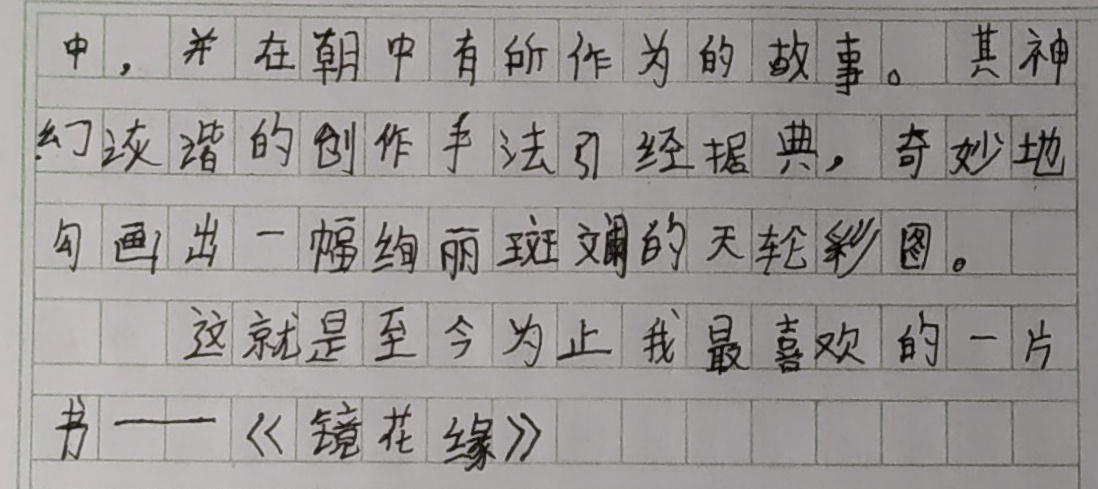 中，并在朝中有所作为的故事。其神
幻诙谐的创作手法引经据典，奇妙地
勾画出一幅绚丽斑斓的天轮彩图。
这就是至今为止我最喜欢的一片
书——《镜花缘》